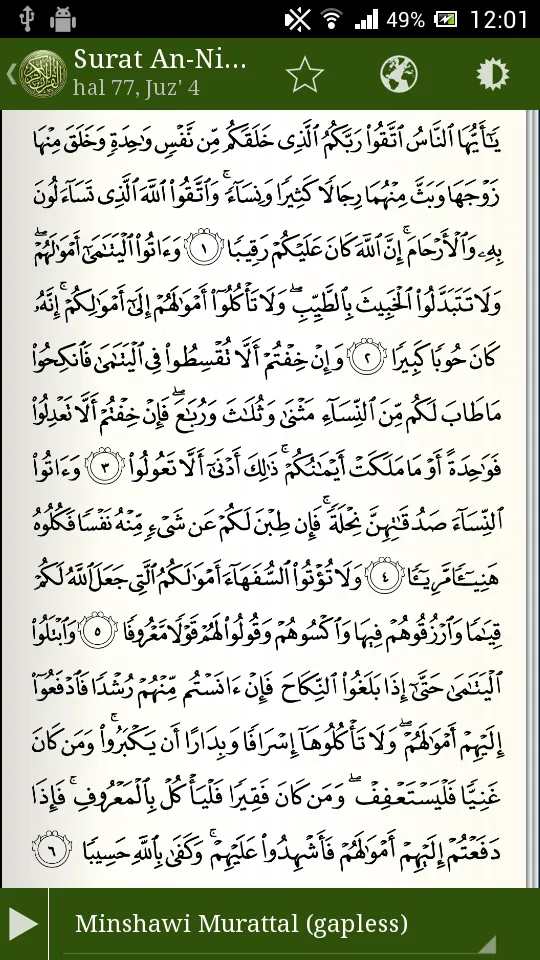 49% 12:01
Surat An-Ni...
hal 77, Juz' 4
يَٰٓأَيُّهَا ٱلنَّاسُ ٱتَّقُوا۟ رَبَّكُمُ ٱلَّذِى خَلَقَكُم مِّن نَّفْسٍ وَٰحِدَةٍ وَخَلَقَ مِنْهَا
زَوْجَهَا وَبَثَّ مِنْهُمَا رِجَالًا كَثِيرًا وَنِسَآءً ۚ وَٱتَّقُوا۟ ٱللَّهَ ٱلَّذِى تَسَآءَلُونَ
بِهِۦ وَٱلْأَرْحَامَ ۚ إِنَّ ٱللَّهَ كَانَ عَلَيْكُمْ رَقِيبًا ١ وَءَاتُوا۟ ٱلْيَتَٰمَىٰٓ أَمْوَٰلَهُمْ ۖ
وَلَا تَتَبَدَّلُوا۟ ٱلْخَبِيثَ بِٱلطَّيِّبِ ۖ وَلَا تَأْكُلُوٓا۟ أَمْوَٰلَهُمْ إِلَىٰٓ أَمْوَٰلِكُمْ ۚ إِنَّهُۥ
كَانَ حُوبًا كَبِيرًا ٢ وَإِنْ خِفْتُمْ أَلَّا تُقْسِطُوا۟ فِى ٱلْيَتَٰمَىٰ فَٱنكِحُوا۟
مَا طَابَ لَكُم مِّنَ ٱلنِّسَآءِ مَثْنَىٰ وَثُلَٰثَ وَرُبَٰعَ ۖ فَإِنْ خِفْتُمْ أَلَّا تَعْدِلُوا۟
فَوَٰحِدَةً أَوْ مَا مَلَكَتْ أَيْمَٰنُكُمْ ۚ ذَٰلِكَ أَدْنَىٰٓ أَلَّا تَعُولُوا۟ ٣ وَءَاتُوا۟
ٱلنِّسَآءَ صَدُقَٰتِهِنَّ نِحْلَةً ۚ فَإِن طِبْنَ لَكُمْ عَن شَىْءٍ مِّنْهُ نَفْسًا فَكُلُوهُ
هَنِيٓـًٔا مَّرِيٓـًٔا ٤ وَلَا تُؤْتُوا۟ ٱلسُّفَهَآءَ أَمْوَٰلَكُمُ ٱلَّتِى جَعَلَ ٱللَّهُ لَكُمْ
قِيَٰمًا وَٱرْزُقُوهُمْ فِيهَا وَٱكْسُوهُمْ وَقُولُوا۟ لَهُمْ قَوْلًا مَّعْرُوفًا ٥ وَٱبْتَلُوا۟
ٱلْيَتَٰمَىٰ حَتَّىٰٓ إِذَا بَلَغُوا۟ ٱلنِّكَاحَ فَإِنْ ءَانَسْتُم مِّنْهُمْ رُشْدًا فَٱدْفَعُوٓا۟
إِلَيْهِمْ أَمْوَٰلَهُمْ ۖ وَلَا تَأْكُلُوهَآ إِسْرَافًا وَبِدَارًا أَن يَكْبَرُوا۟ ۚ وَمَن كَانَ
غَنِيًّا فَلْيَسْتَعْفِفْ ۖ وَمَن كَانَ فَقِيرًا فَلْيَأْكُلْ بِٱلْمَعْرُوفِ ۚ فَإِذَا
دَفَعْتُمْ إِلَيْهِمْ أَمْوَٰلَهُمْ فَأَشْهِدُوا۟ عَلَيْهِمْ ۚ وَكَفَىٰ بِٱللَّهِ حَسِيبًا ٦
Minshawi Murattal (gapless)